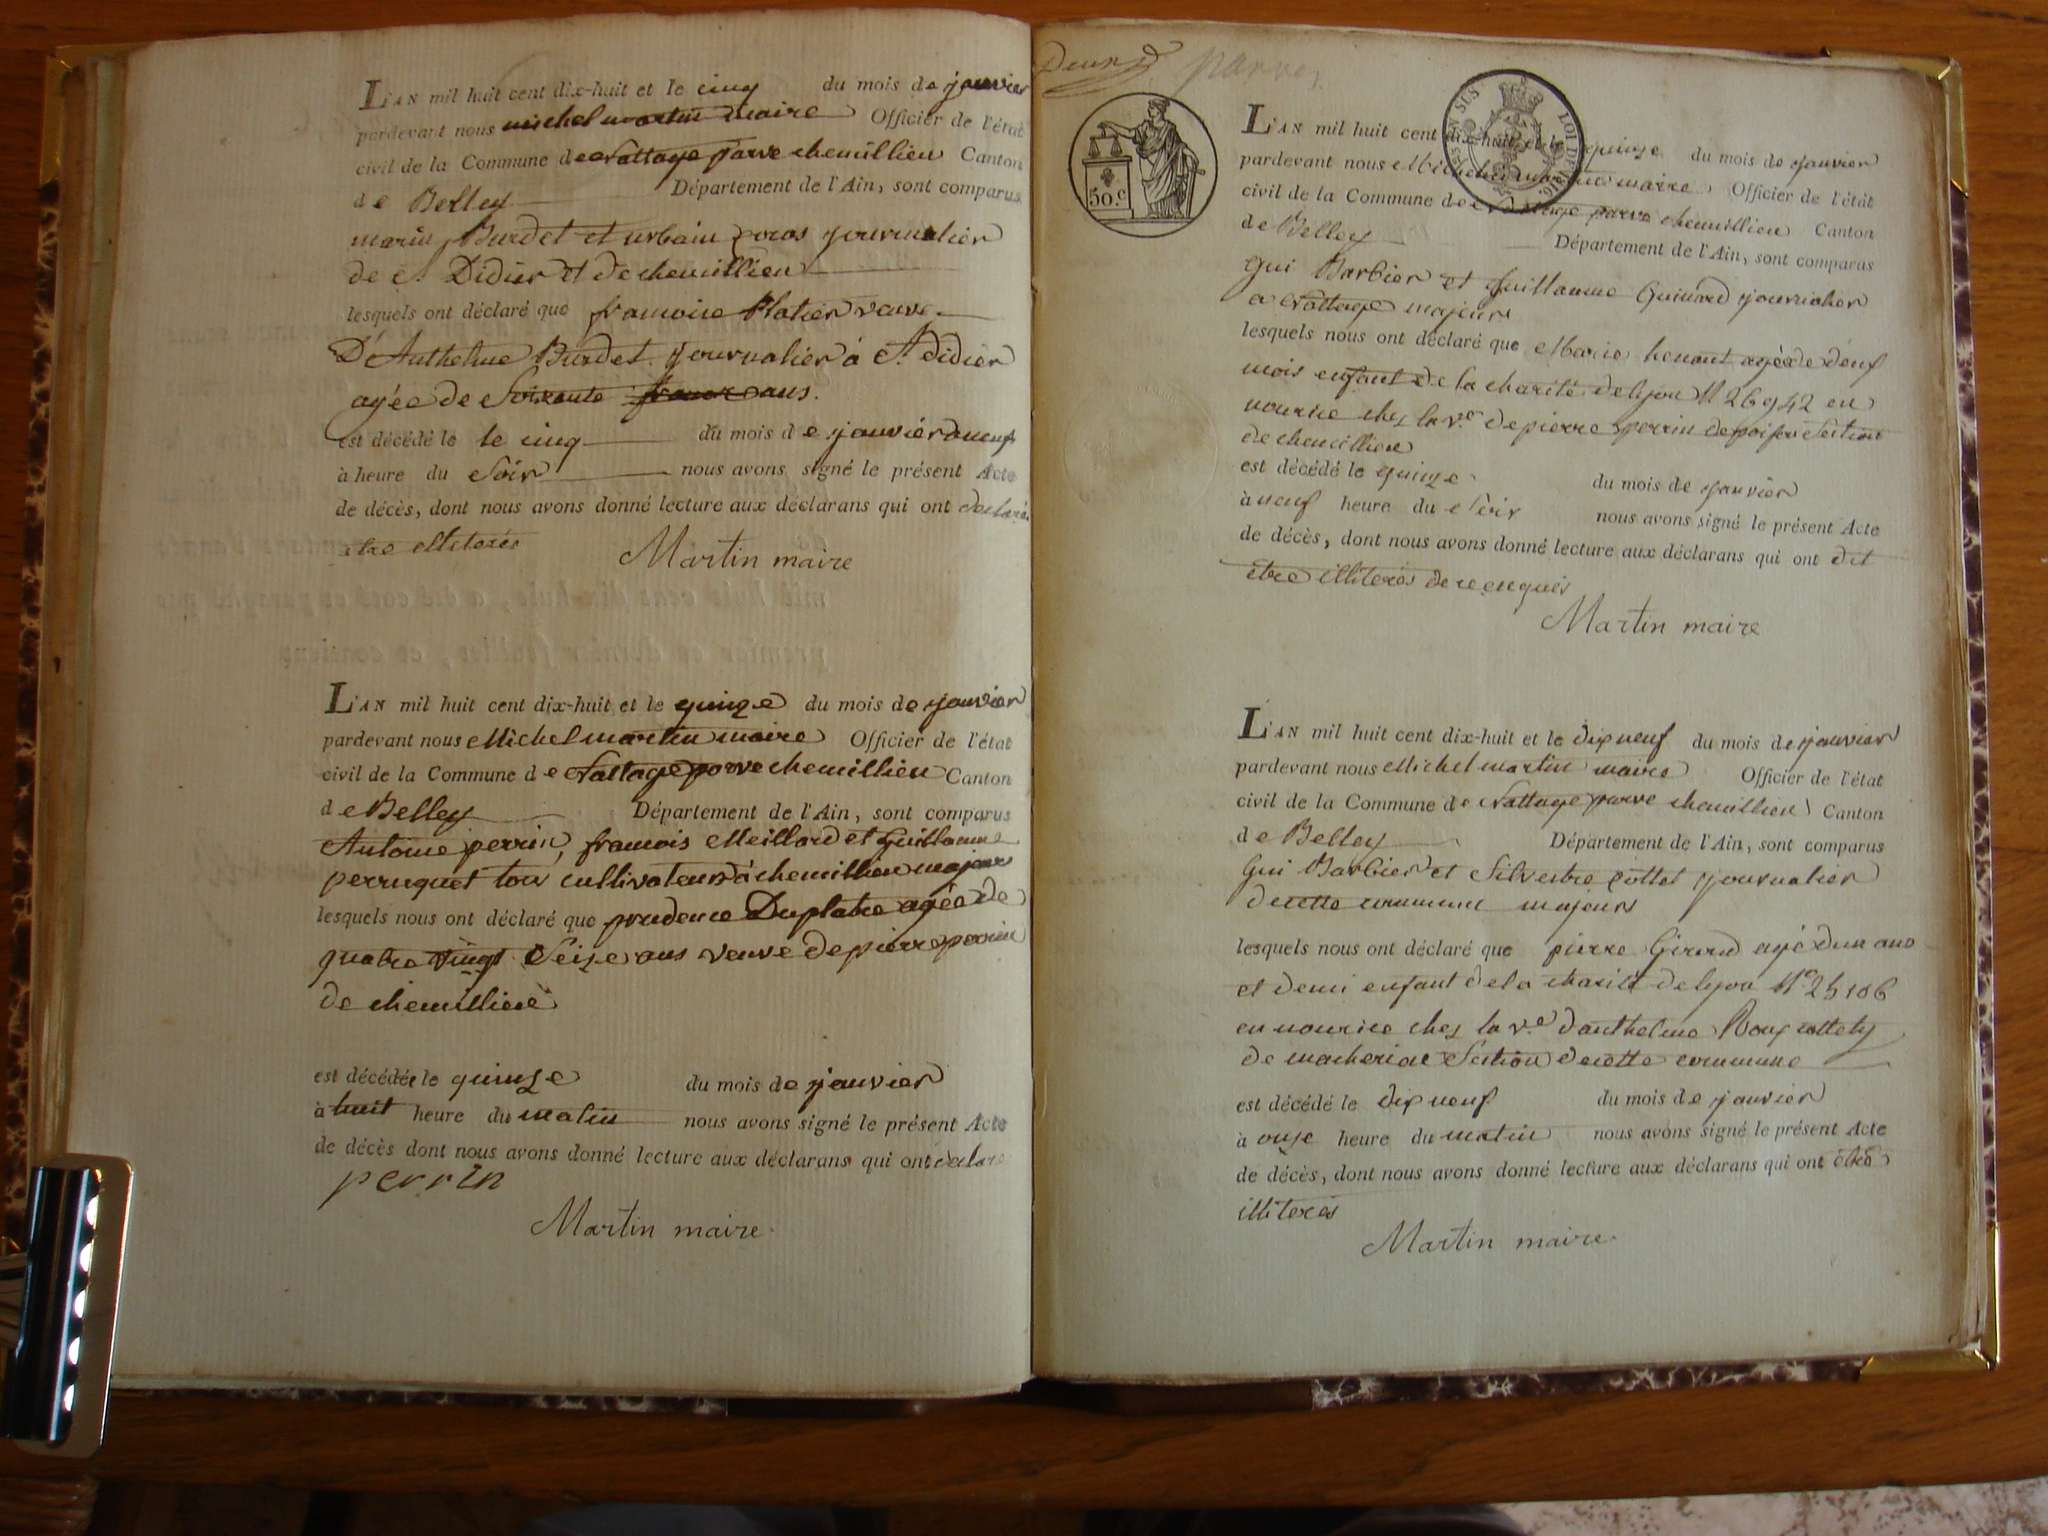 L'AN mil huit cent dix-huit et le cinq du mois de janvier
pardevant nous michel martin maire Officier de l'état
civil de la Commune de Nattage parve chemillieu Canton
de Belley Département de l'Ain, sont comparus
marin Burdet et urbain journalier
de St Didier et de chemillieu
lesquels ont déclaré que francoise Platier veuve
D'Anthelme Burdet journalier à St didier
agée de Soixante ans.
est décédé le le cinq du mois de janvier a neuf
à heure du Soir nous avons signé le présent Acte
de décès, dont nous avons donné lecture aux déclarans qui ont déclaré
etre illiterés
Martin maire
L'AN mil huit cent dix-huit et le quinze du mois de janvier
pardevant nous Michel martin maire Officier de l'état
civil de la Commune de Nattage parve chemillieu Canton
de Belley Département de l'Ain, sont comparus
Antoine perrin, francois Meillard et Guillaume
perruquet tous cultivateurs à chemillieu majeurs
lesquels nous ont déclaré que prudence Duplatre agée de
quatre vingt Seize ans veuve de pierre perrin
de chemillieu
est décédée le quinze du mois de janvier
à huit heure du matin nous avons signé le présent Acte
de décès dont nous avons donné lecture aux déclarans qui ont declaré
perrin
Martin maire
parves
50.c
EN SUS
LOI DE 1816.
L'AN mil huit cent dix-huit et le quinze du mois de janvier
pardevant nous Michel martin maire Officier de l'état
civil de la Commune de Nattage parve chemillieu Canton
de Belley Département de l'Ain, sont comparus
Gui Barbier et Guillaume journalier
a Nattage majeurs
lesquels nous ont déclaré que Marie agée de neuf
mois enfant de la charité de lyon N 26942 en
nourice chez la ve de pierre perrin Section
de chemillieu
est décédé le quinze du mois de janvier
à neuf heure du Soir nous avons signé le présent Acte
de décès, dont nous avons donné lecture aux déclarans qui ont dit
être illiterés de ce enquis
Martin maire
L'AN mil huit cent dix-huit et le dix neuf du mois de janvier
pardevant nous Michel martin maire Officier de l'état
civil de la Commune de Nattage parve chemillieu Canton
de Belley Département de l'Ain, sont comparus
Gui Barbier et Silvestre Cottet journalier
de cette commune majeurs
lesquels nous ont déclaré que pierre Girard agé d'un ans
et demi enfant de la charité de lyon No 25106
en nourice chez la ve d'anthelme
de macherieu Section de cette commune
est décédé le dix neuf du mois de janvier
à onze heure du matin nous avons signé le présent Acte
de décès, dont nous avons donné lecture aux déclarans qui ont été
illiterés
Martin maire